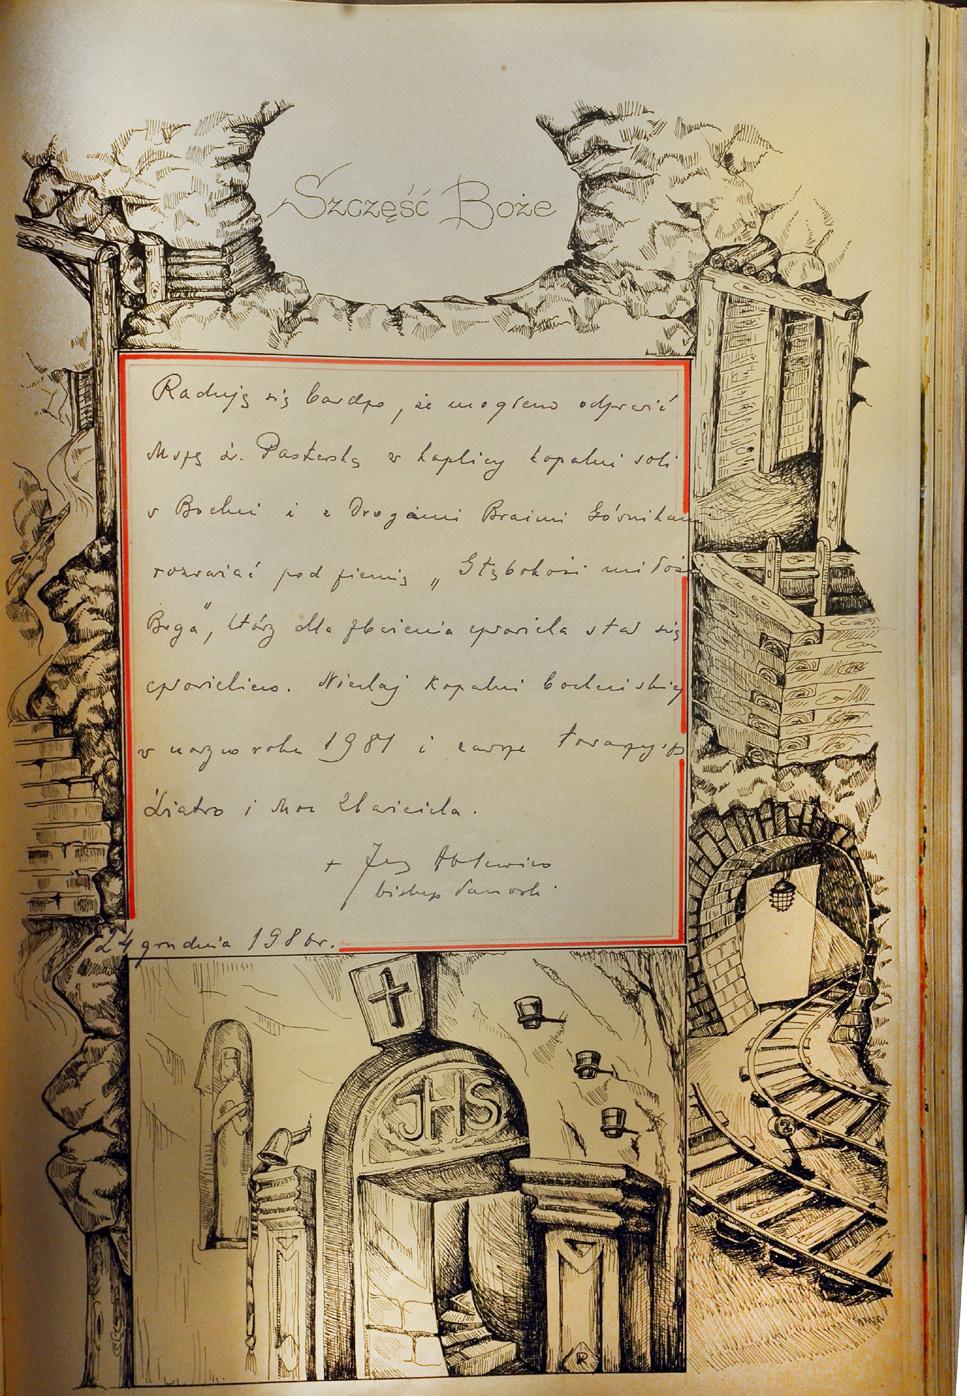 Szczęść Boże
Raduję się bardzo, że mogłem odprawić
Mszę św. Pasterską w kaplicy kopalni soli
w Bochni i z Drogimi Braćmi Górnikami
rozważać pod ziemią „Głębokości miłości
Boga", który dla zbawienia człowieka stał się
człowiekiem. Niechaj kopalni bocheńskiej
w nowym roku 1981 i zawsze towarzyszy
Światło i Moc Zbawiciela.
+ Jerzy Ablewicz
biskup Tarnowski
24 grudnia 1980r.
JHS
2
R